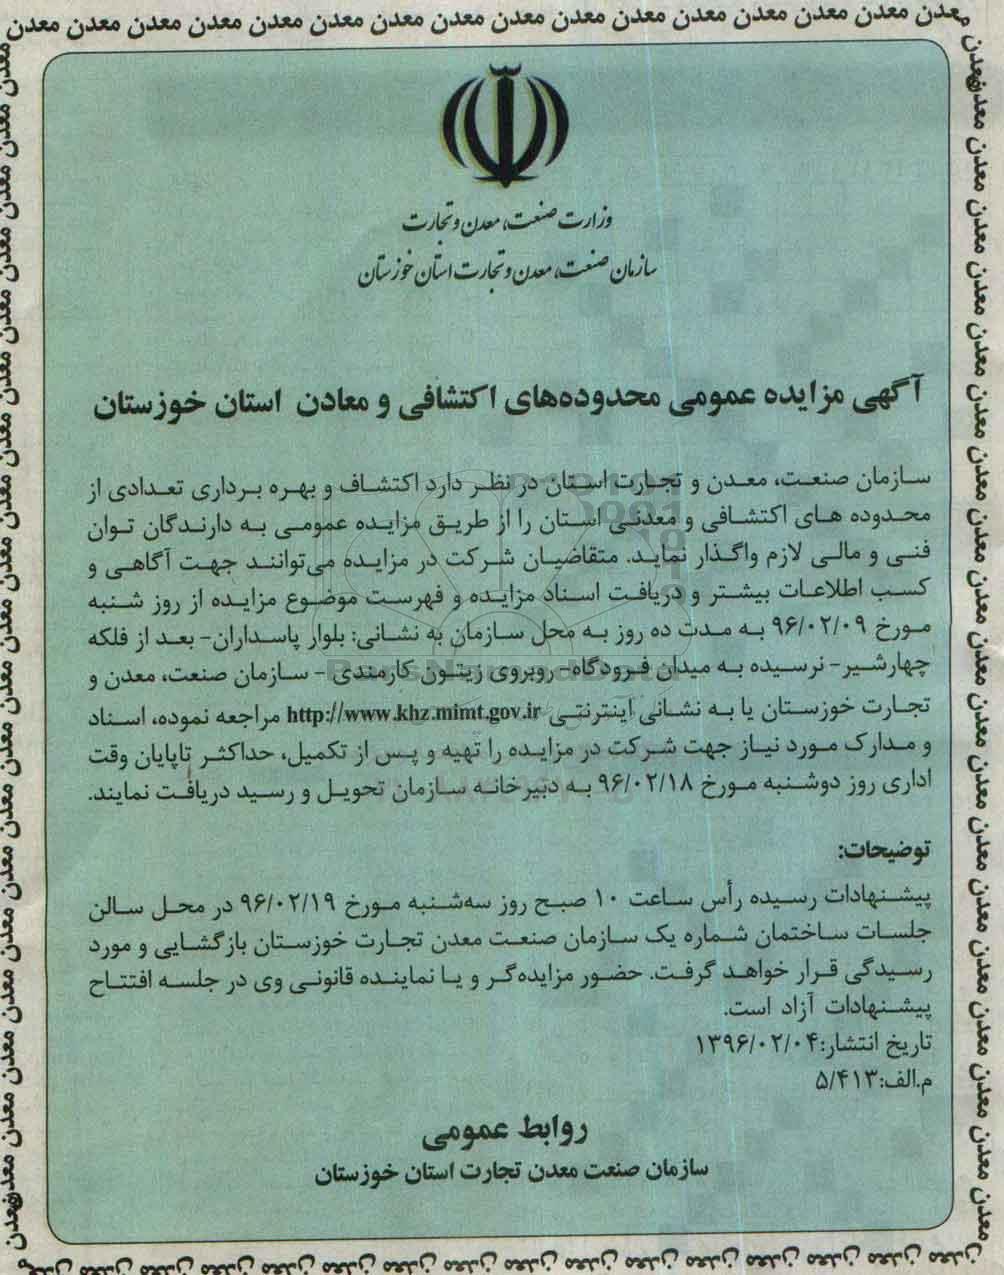 معدن معدن معدن معدن معدن معدن معدن معدن معدن معدن معدن معدن معدن معدن معدن معدن
وزارت صنعت، معدن و تجارت
سازمان صنعت، معدن و تجارت استان خوزستان
آگهی مزایده عمومی محدوده‌های اکتشافی و معادن استان خوزستان
سازمان صنعت، معدن و تجارت استان در نظر دارد اکتشاف و بهره برداری تعدادی از
محدوده های اکتشافی و معدنی استان را از طریق مزایده عمومی به دارندگان توان
فنی و مالی لازم واگذار نماید. متقاضیان شرکت در مزایده می‌توانند جهت آگاهی و
کسب اطلاعات بیشتر و دریافت اسناد مزایده و فهرست موضوع مزایده از روز شنبه
مورخ ۹۶/۰۲/۰۹ به مدت ده روز به محل سازمان به نشانی: بلوار پاسداران- بعد از فلکه
چهارشیر- نرسیده به میدان فرودگاه- روبروی زیتون کارمندی - سازمان صنعت، معدن و
تجارت خوزستان یا به نشانی اینترنتی http://www.khz.mimt.gov.ir مراجعه نموده، اسناد
و مدارک مورد نیاز جهت شرکت در مزایده را تهیه و پس از تکمیل، حداکثر تاپایان وقت
اداری روز دوشنبه مورخ ۹۶/۰۲/۱۸ به دبیرخانه سازمان تحویل و رسید دریافت نمایند.
توضیحات:
پیشنهادات رسیده رأس ساعت ۱۰ صبح روز سه‌شنبه مورخ ۹۶/۰۲/۱۹ در محل سالن
جلسات ساختمان شماره یک سازمان صنعت معدن تجارت خوزستان بازگشایی و مورد
رسیدگی قرار خواهد گرفت. حضور مزایده‌گر و یا نماینده قانونی وی در جلسه افتتاح
پیشنهادات آزاد است.
تاریخ انتشار:۱۳۹۶/۰۲/۰۴
م.الف:۵/۴۱۳
روابط عمومی
سازمان صنعت معدن تجارت استان خوزستان